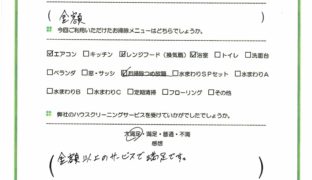 (金額)
今回ご利用いただけたお掃除メニューはどちらでしょうか。
☑エアコン □キッチン ☑レンジフード(換気扇) ☑浴室 □トイレ □洗面台
□ベランダ □窓・サッシ ☑お掃除つめ放題 □水まわりSPセット □水まわりA
□水まわりB □水まわりC □定期清掃 □フローリング □その他
弊社のハウスクリーニングサービスを受けていかがでしたでしょうか。
大満足・満足・普通・不満
感想
(金額以上のサービスで満足です。)